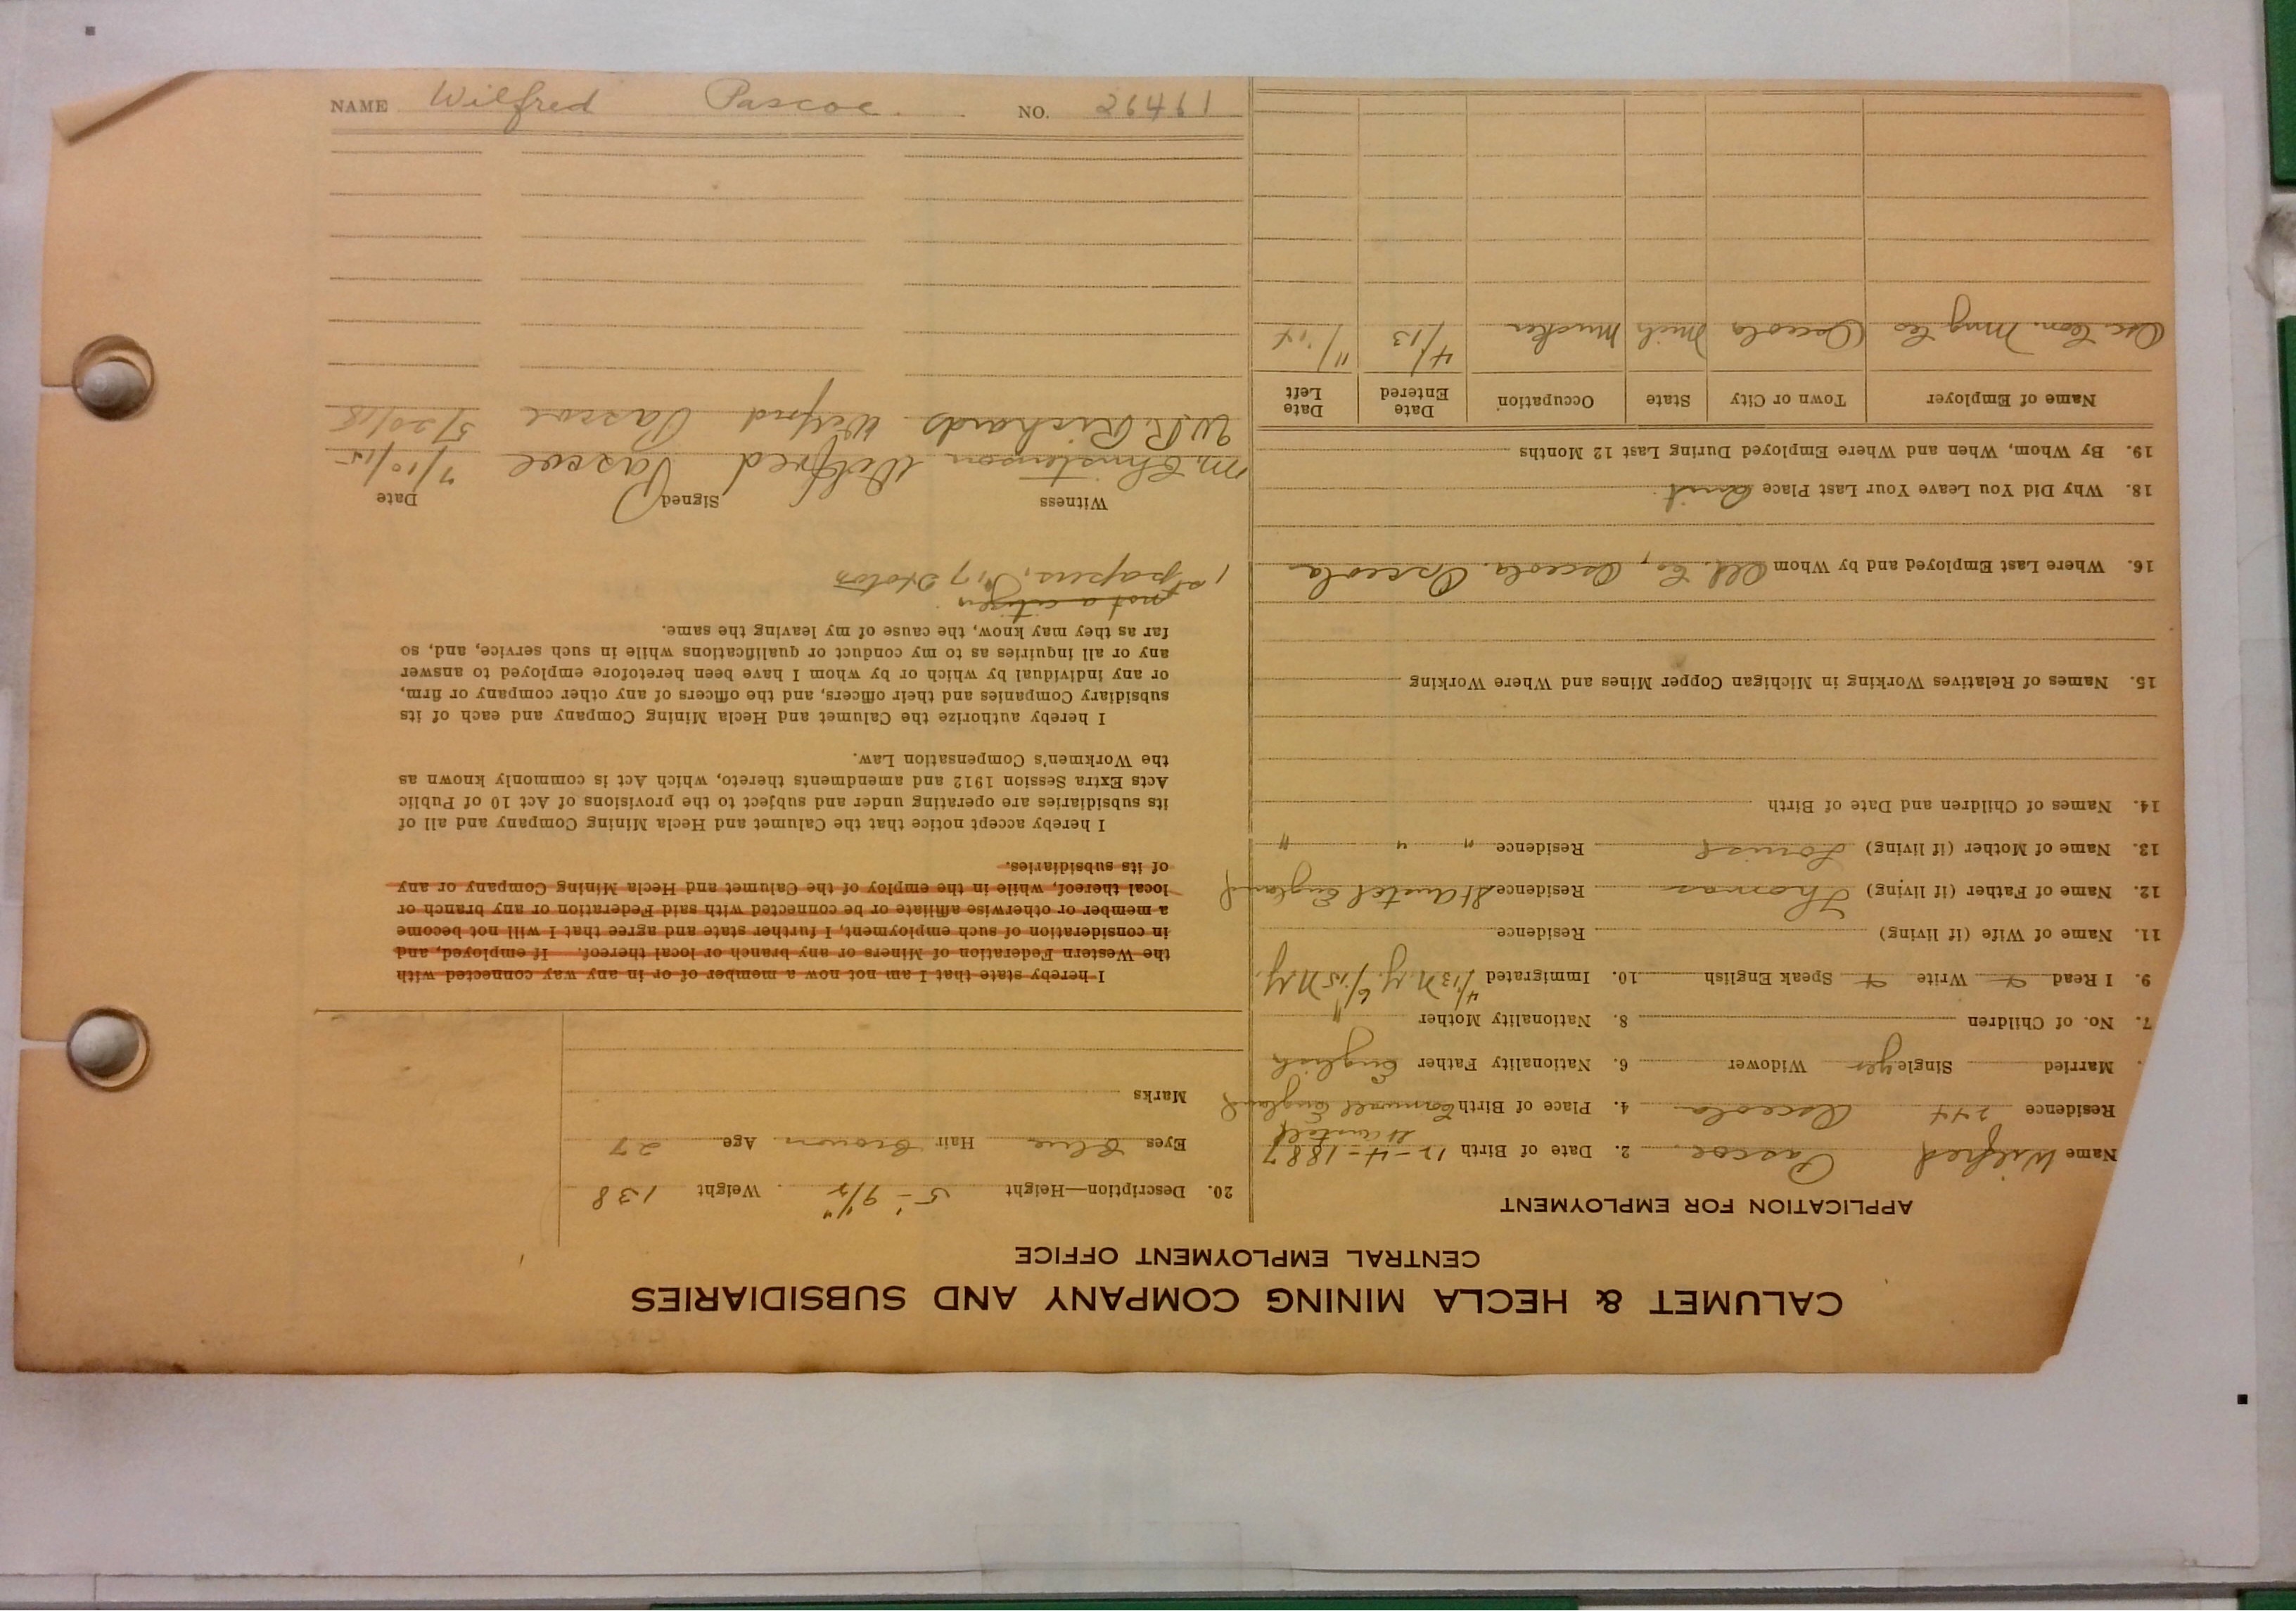 NAME Wilfred Pascoe. NO. 26461
CALUMET & HECLA MINING COMPANY AND SUBSIDIARIES
CENTRAL EMPLOYMENT OFFICE
APPLICATION FOR EMPLOYMENT
Name Wilfred Pascoe. 2. Date of Birth 12-4-1887
Residence 244 Osceola 4. Place of Birth St Austell Cornwall England
Married Single yes Widower 6. Nationality Father English
7. No. of Children 8. Nationality Mother "
9. I Read Write Speak English 10. Immigrated 4/13 N.Y. 6/15 N.Y.
11. Name of Wife (if living) Residence
12. Name of Father (if living) Thomas Residence St Austel England
13. Name of Mother (if living) Louisa Residence " " "
14. Names of Children and Date of Birth
15. Names of Relatives Working in Michigan Copper Mines and Where Working
16. Where Last Employed and by Whom Osceola. Osceola
18. Why Did You Leave Your Last Place Quit
19. By Whom, When and Where Employed During Last 12 Months
Name of Employer Town or City State Occupation Date Entered Date Left
Osc. Con. Mng Co Osceola Mich Mucker 4/13 11/14
20. Description—Height 5'-9 1/2" Weight 138
Eyes Blue Hair Brown Age 27
Marks
I hereby state that I am not now a member of or in any way connected with
the Western Federation of Miners or any branch or local thereof. If employed, and
in consideration of such employment, I further state and agree that I will not become
a member or otherwise affiliate or be connected with said Federation or any branch or
local thereof, while in the employ of the Calumet and Hecla Mining Company or any
of its subsidiaries.
I hereby accept notice that the Calumet and Hecla Mining Company and all of
its subsidiaries are operating under and subject to the provisions of Act 10 of Public
Acts Extra Session 1912 and amendments thereto, which Act is commonly known as
the Workmen's Compensation Law.
I hereby authorize the Calumet and Hecla Mining Company and each of its
subsidiary Companies and their officers, and the officers of any other company or firm,
or any individual by which or by whom I have been heretofore employed to answer
any or all inquiries as to my conduct or qualifications while in such service, and, so
far as they may know, the cause of my leaving the same.
not a citizen
1st papers,
Witness Signed Date
M. Christenson Wilfred Pascoe 7/10/15
W.R. Richards Wilfred Pascoe 5/20/18